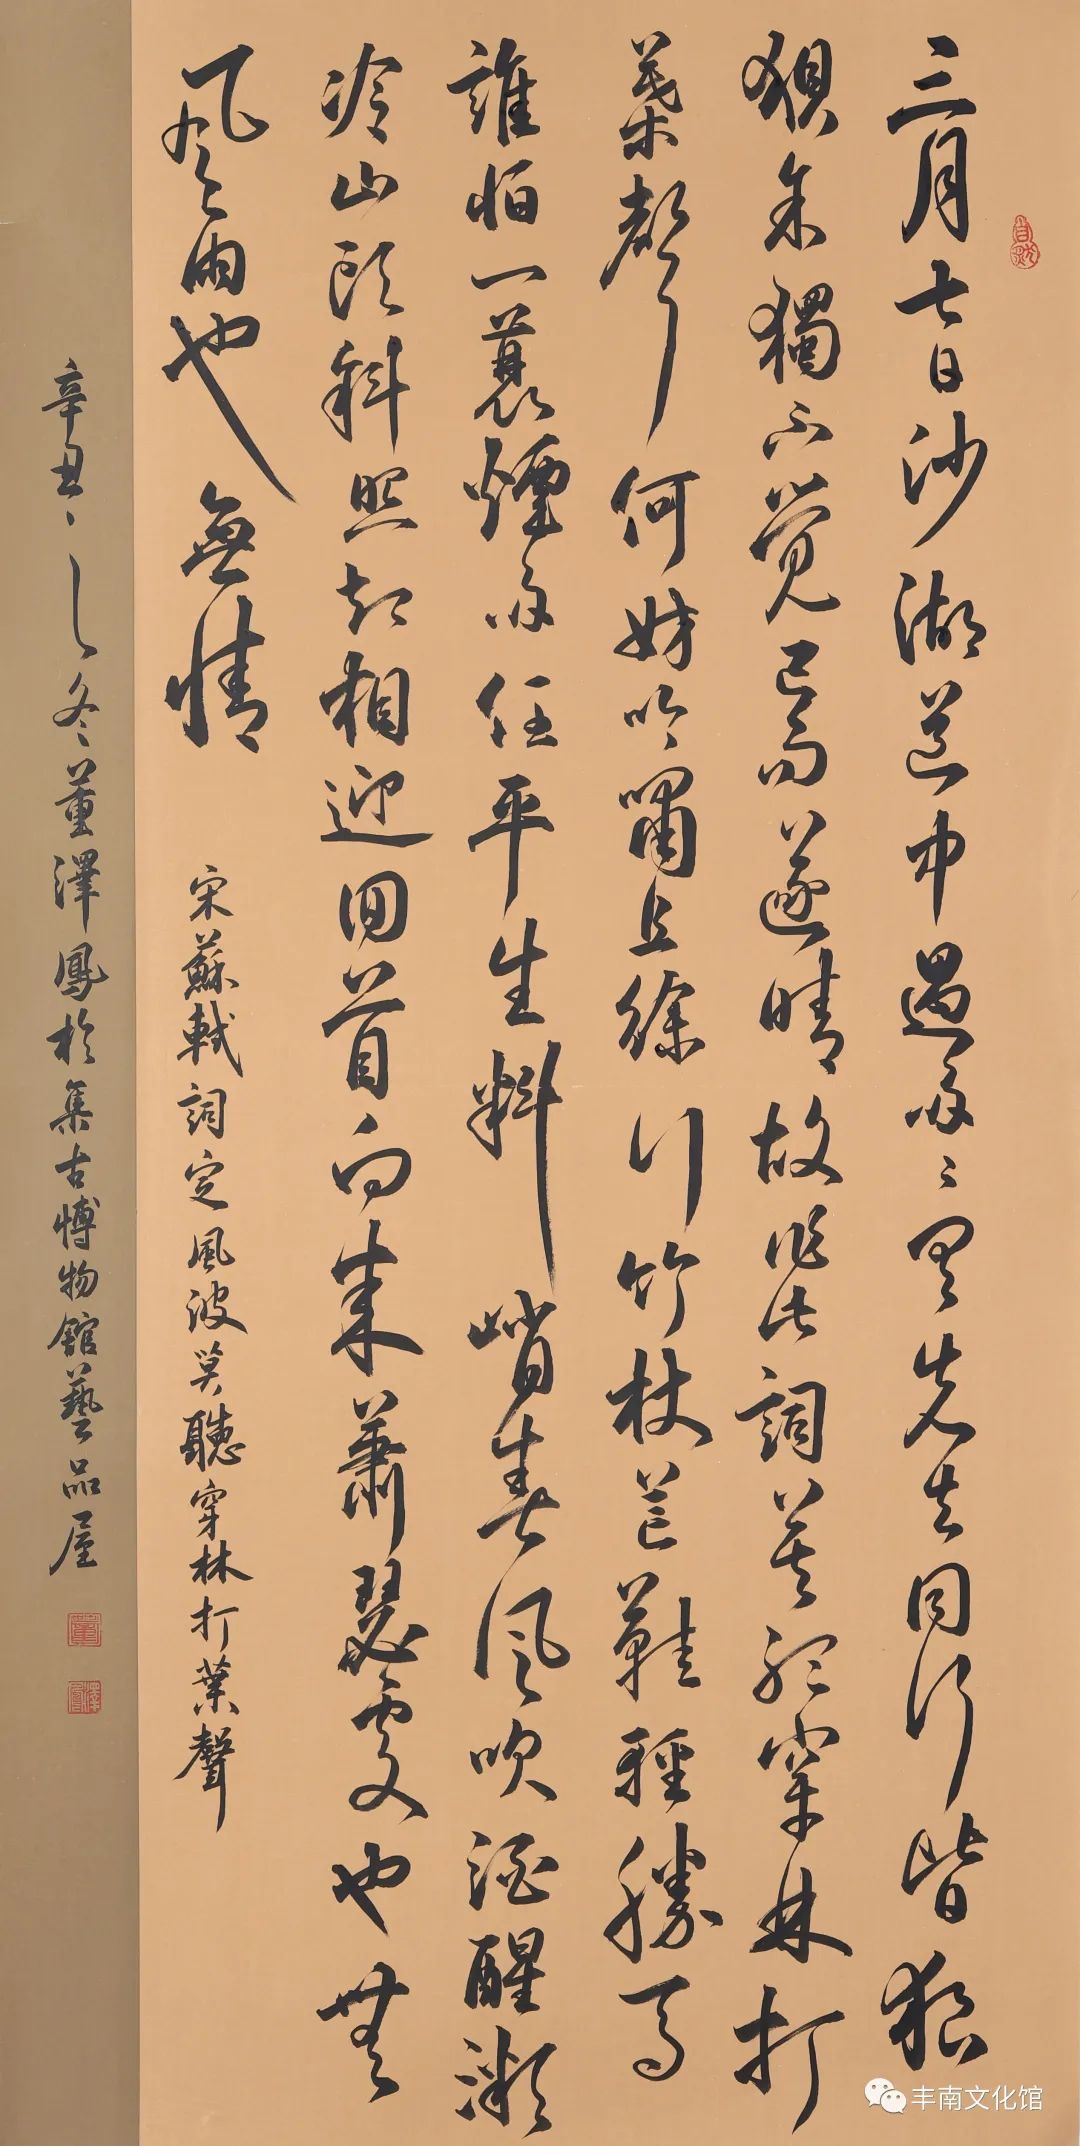 三月七日沙湖道中遇雨〻具先去同行皆狼
狽余獨不覺已而遂晴故作此詞莫聽穿林打
葉聲何妨吟嘯且徐行竹杖芒鞋輕勝馬
誰怕一蓑煙雨任平生料峭春風吹酒醒微
冷山頭斜照却相迎回首向來蕭瑟處也無
風雨也無情
宋蘇軾詞定風波莫聽穿林打葉聲
辛丑之冬董澤鳳於集古博物館藝品屋
丰南文化馆